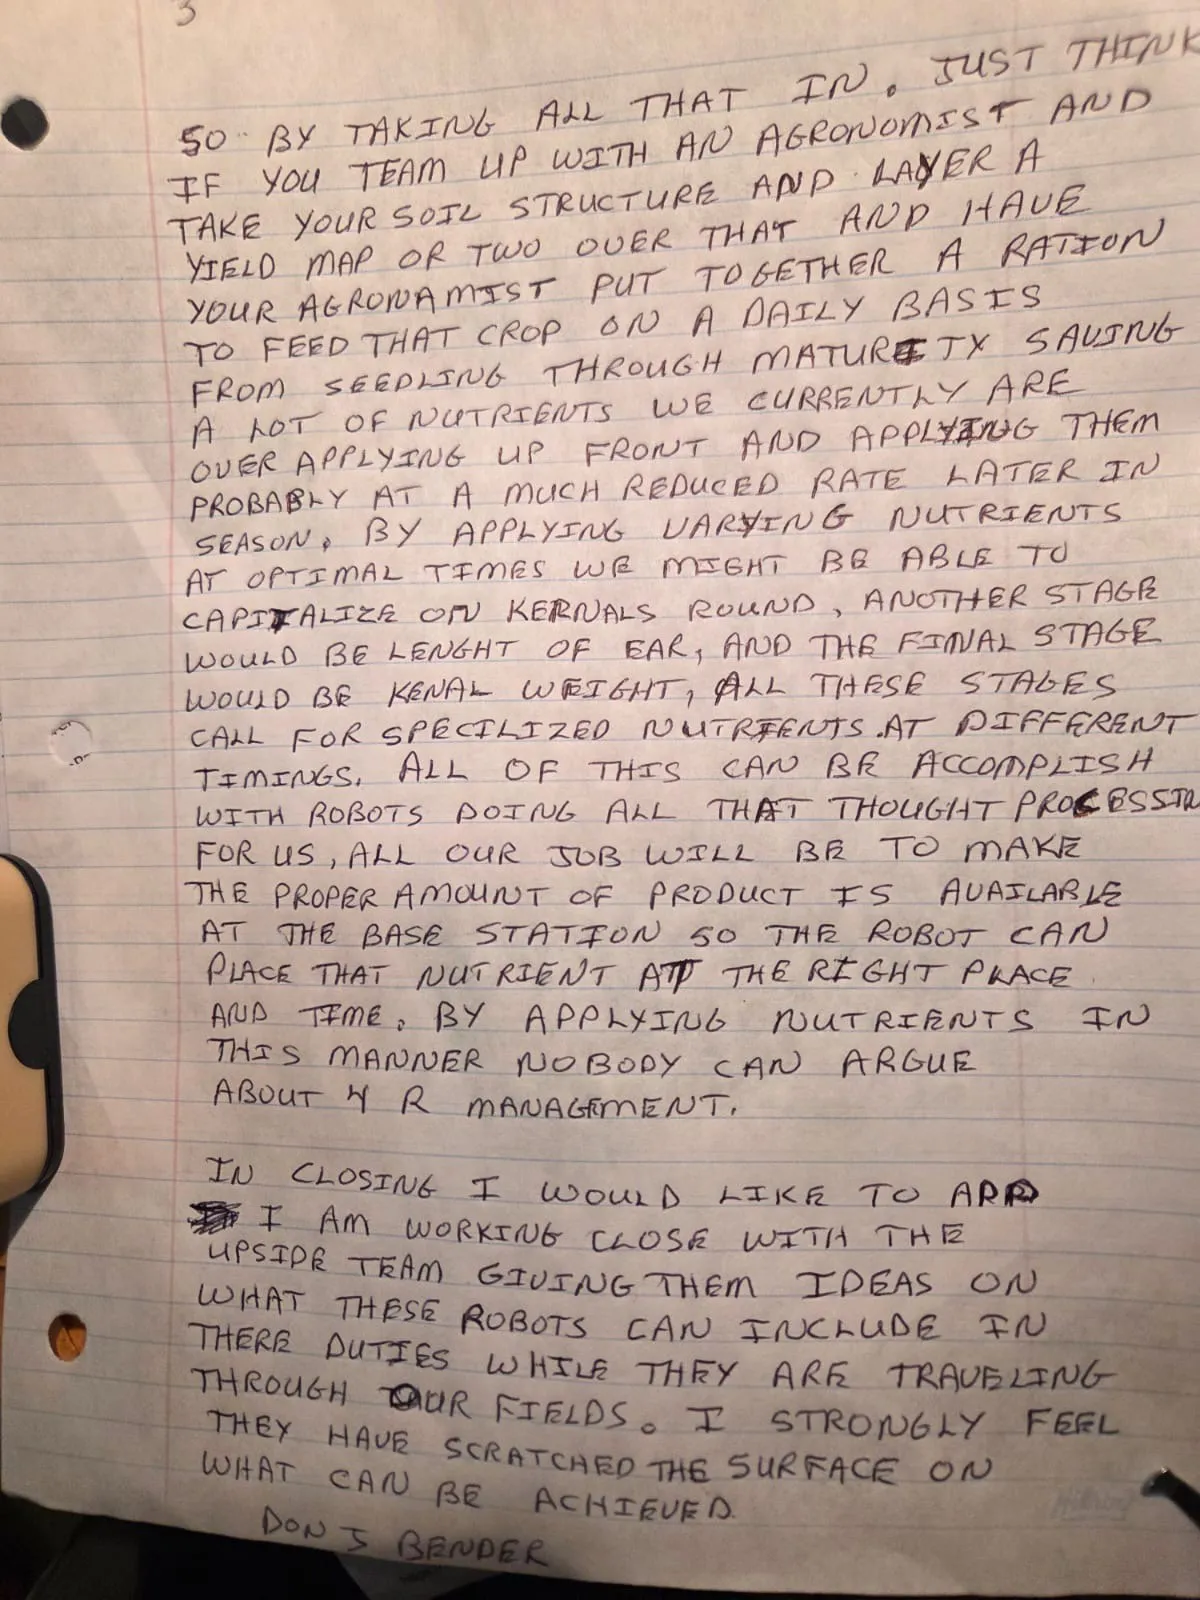 3
SO BY TAKING ALL THAT IN. JUST THINK
IF YOU TEAM UP WITH AN AGRONOMIST AND
TAKE YOUR SOIL STRUCTURE AND LAYER A
YIELD MAP OR TWO OVER THAT AND HAVE
YOUR AGRONAMIST PUT TOGETHER A RATION
TO FEED THAT CROP ON A DAILY BASIS
FROM SEEDLING THROUGH MATURITY SAVING
A LOT OF NUTRIENTS WE CURRENTLY ARE
OVER APPLYING UP FRONT AND APPLYING THEM
PROBABLY AT A MUCH REDUCED RATE LATER IN
SEASON. BY APPLYING VARYING NUTRIENTS
AT OPTIMAL TIMES WE MIGHT BE ABLE TO
CAPITALIZE ON KERNALS ROUND, ANOTHER STAGE
WOULD BE LENGHT OF EAR, AND THE FINAL STAGE
WOULD BE KENAL WEIGHT, ALL THESE STAGES
CALL FOR SPECILIZED NUTRIENTS AT DIFFERENT
TIMINGS. ALL OF THIS CAN BE ACCOMPLISH
WITH ROBOTS DOING ALL THAT THOUGHT PROCESSIN
FOR US, ALL OUR JOB WILL BE TO MAKE
THE PROPER AMOUNT OF PRODUCT IS AVAILABLE
AT THE BASE STATION SO THE ROBOT CAN
PLACE THAT NUTRIENT AT THE RIGHT PLACE
AND TIME. BY APPLYING NUTRIENTS IN
THIS MANNER NOBODY CAN ARGUE
ABOUT 4 R MANAGEMENT.
IN CLOSING I WOULD LIKE TO ADD
I AM WORKING CLOSE WITH THE
UPSIDE TEAM GIVING THEM IDEAS ON
WHAT THESE ROBOTS CAN INCLUDE IN
THERE DUTIES WHILE THEY ARE TRAVELING
THROUGH OUR FIELDS. I STRONGLY FEEL
THEY HAVE SCRATCHED THE SURFACE ON
WHAT CAN BE ACHIEVED.
DON J BENDER